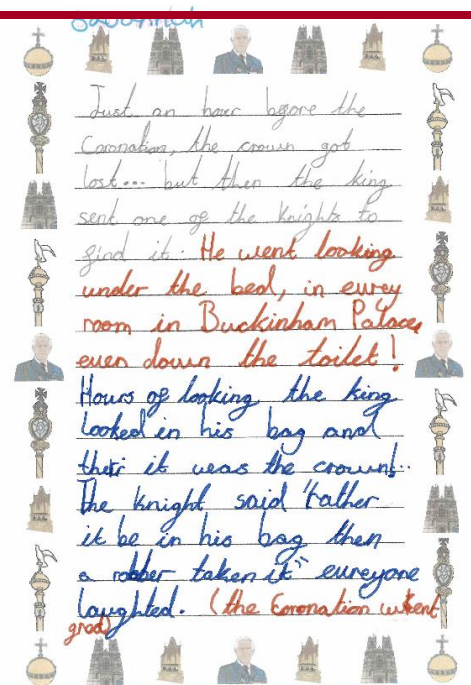 Savannah
Just an hour before the
Coronation, the crown got
lost... but then the king
sent one of the Knights to
find it. He went looking
under the bed, in eurey
room in Buckinham Palace,
even down the toilet!
Hours of looking the king
looked in his bag and
their it was the crown!..
The knight said "rather
it be in his bag then
a robber taken it" eureyone
laughted. (the Coronation went
great)